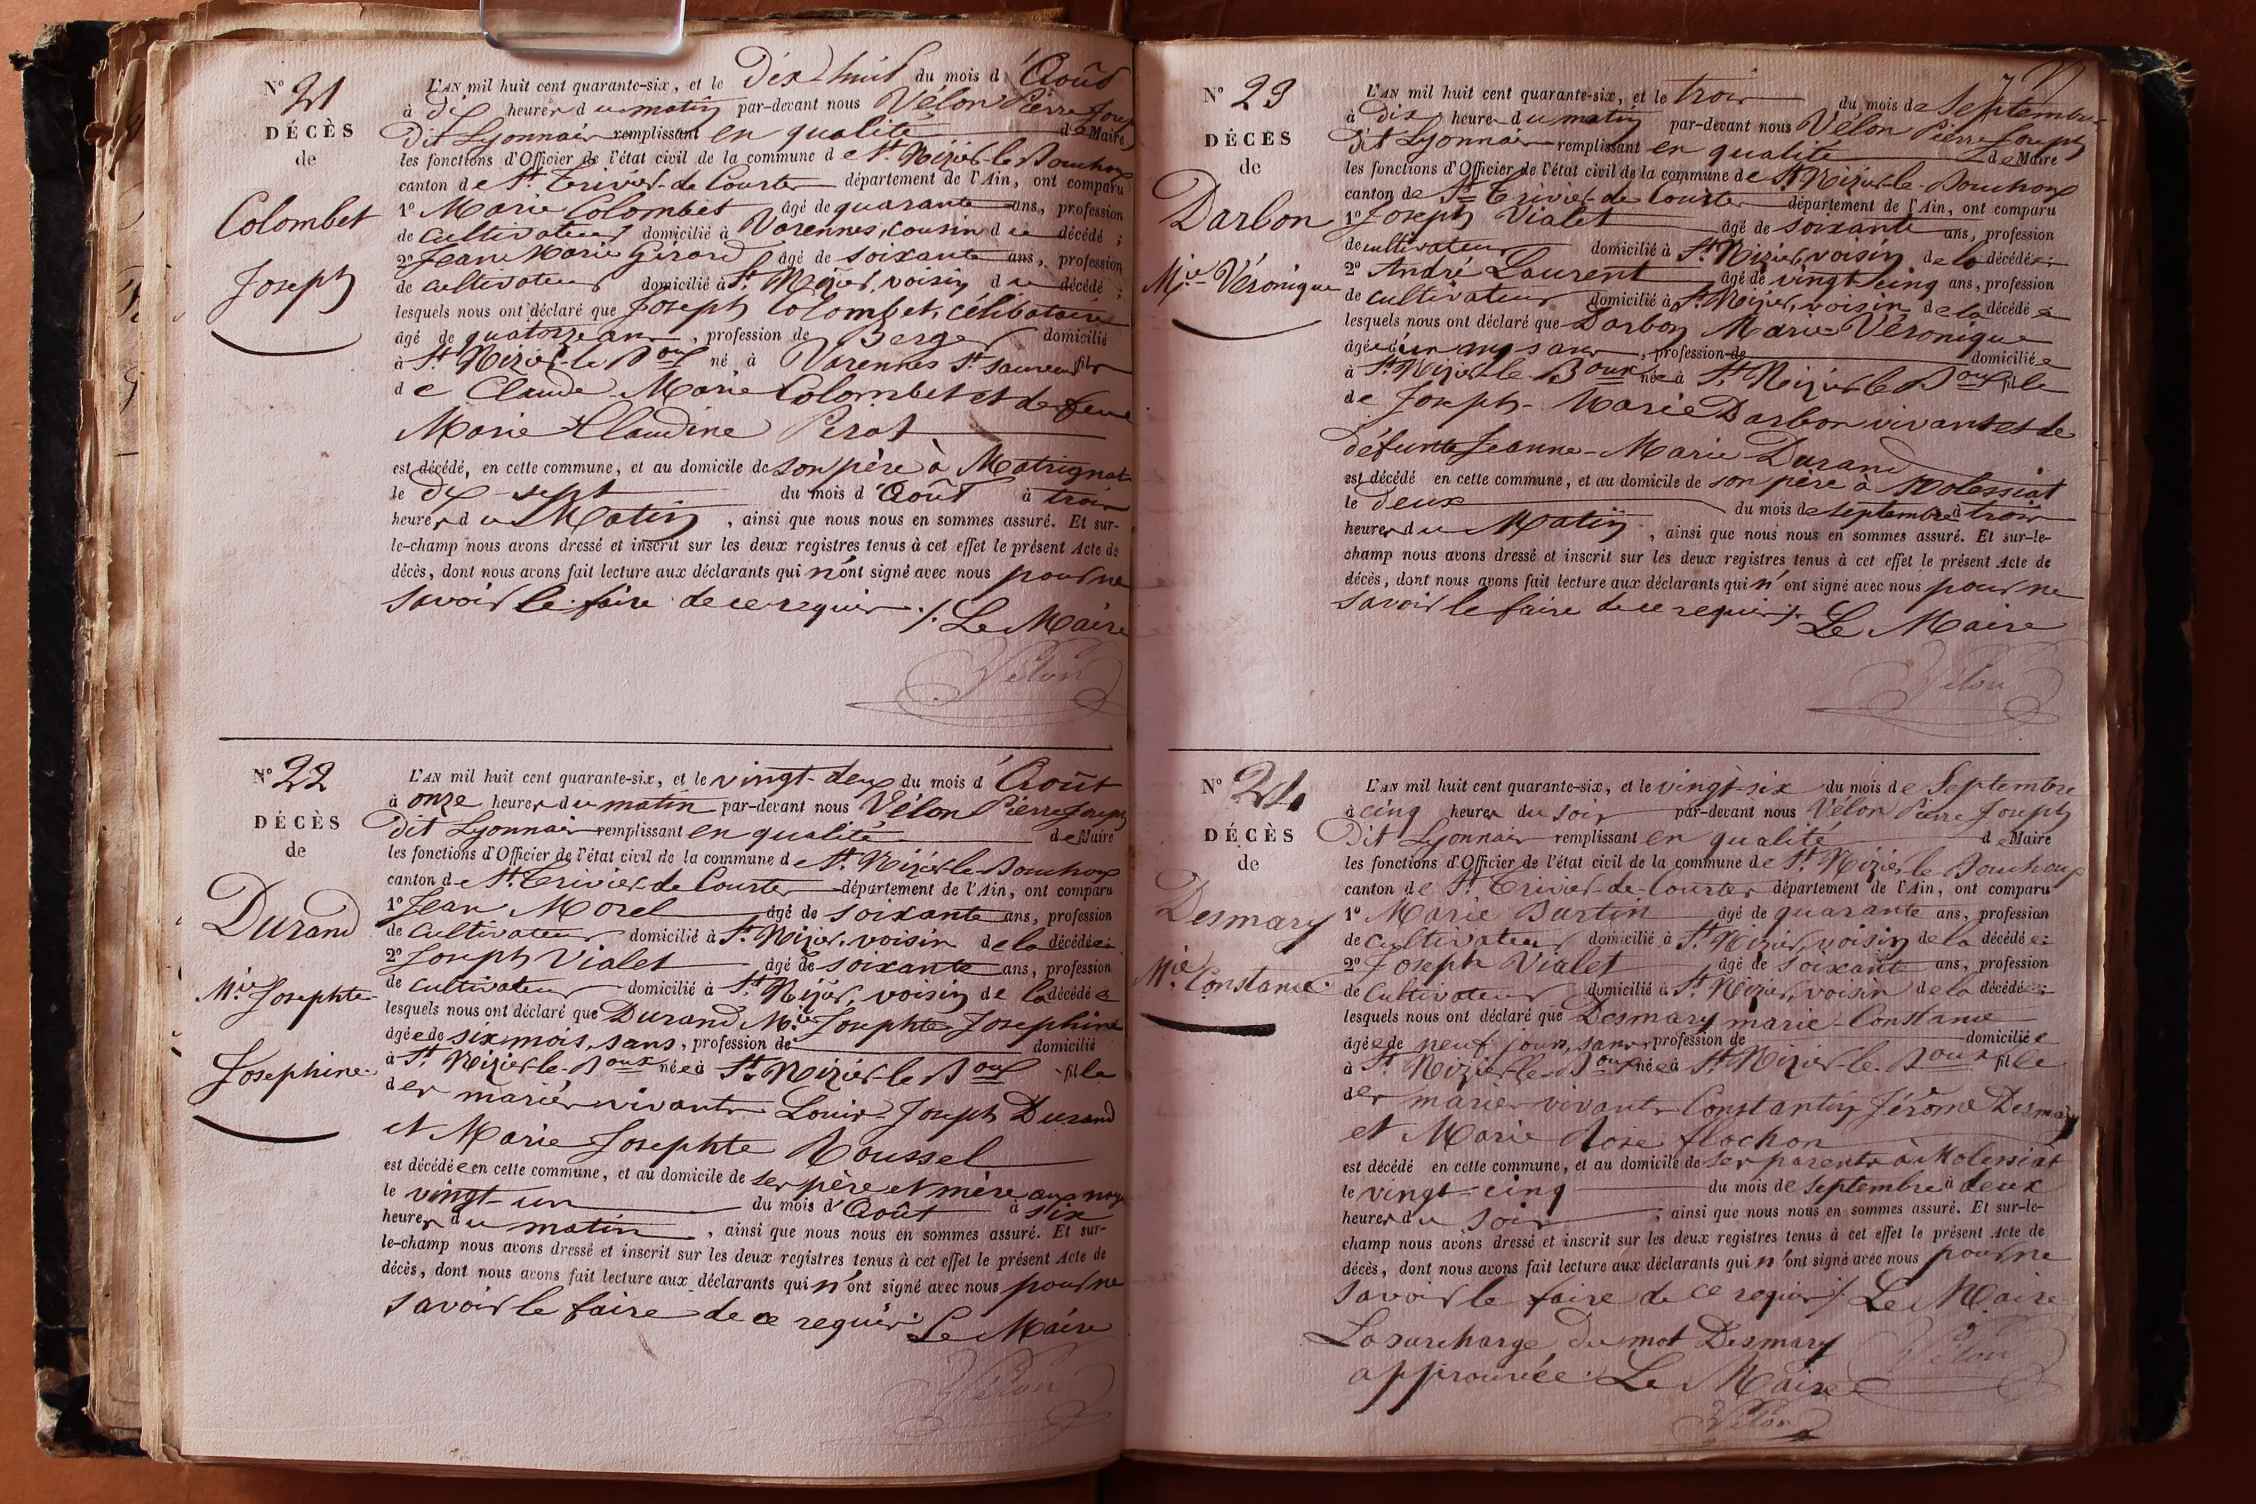 N° 21
DÉCÈS
de
Colombet
Joseph
L'AN mil huit cent quarante-six, et le Dix huit du mois d'Août
à dix heures du matin par-devant nous Vélon Pierre Joseph
dit Lyonnais remplissant en qualité de Maire
les fonctions d'Officier de l'état civil de la commune de St. Nizier-le-Bouchoux
canton de St. Trivier-de-Courtes département de l'Ain, ont comparu
1° Marie Colombet âgé de quarante ans, profession
de cultivateur domicilié à Varennes, cousin du décédé ;
2° Jean Marie Girard âgé de soixante ans, profession
de cultivateur domicilié à St. Nizier, voisin du décédé ;
lesquels nous ont déclaré que Joseph Colombet, célibataire
âgé de quatorze ans, profession de Berger domicilié
à St. Nizier-le-Boux né à Varennes St. Sauveur fils
de Claude-Marie Colombet et de feue
Marie Claudine Perat
est décédé, en cette commune, et au domicile de son père à Matrignat
le dix-sept du mois d'Août à trois
heures du Matin, ainsi que nous nous en sommes assuré. Et sur-
le-champ nous avons dressé et inscrit sur les deux registres tenus à cet effet le présent Acte de
décès, dont nous avons fait lecture aux déclarants qui n'ont signé avec nous pour ne
savoir le faire de ce requis ./. Le Maire
Vélon
N° 22
DÉCÈS
de
Durand
Mie. Josephte
Josephine
L'AN mil huit cent quarante-six, et le vingt-deux du mois d'Août
à onze heures du matin par-devant nous Vélon Pierre Joseph
dit Lyonnais remplissant en qualité de Maire
les fonctions d'Officier de l'état civil de la commune de St. Nizier-le-Bouchoux
canton de St. Trivier-de-Courtes département de l'Ain, ont comparu
1° Jean Morel âgé de soixante ans, profession
de cultivateur domicilié à St. Nizier, voisin de la décédée ;
2° Joseph Vialet âgé de soixante ans, profession
de cultivateur domicilié à St. Nizier, voisin de la décédée
lesquels nous ont déclaré que Durand Mie. Josephte Josephine
âgée de six mois, sans, profession de domicilié
à St. Nizier-le-Boux née à St. Nizier-le-Boux fille
des mariés vivants Louis-Joseph Durand
et Marie Josephte Roussel
est décédée en cette commune, et au domicile de ses père et mère aux
le vingt-un du mois d'Août à six
heures du matin, ainsi que nous nous en sommes assuré. Et sur-
le-champ nous avons dressé et inscrit sur les deux registres tenus à cet effet le présent Acte de
décès, dont nous avons fait lecture aux déclarants qui n'ont signé avec nous pour ne
savoir le faire de ce requis. Le Maire
Vélon
N° 23
DÉCÈS
de
Darbon
Mie- Véronique
L'AN mil huit cent quarante-six, et le trois du mois de Septembre
à dix heures du matin par-devant nous Vélon Pierre Joseph
dit Lyonnais remplissant en qualité de Maire
les fonctions d'Officier de l'état civil de la commune de St. Nizier-le-Bouchoux
canton de St. Trivier-de-Courtes département de l'Ain, ont comparu
1° Joseph Vialet âgé de soixante ans, profession
de cultivateur domicilié à St. Nizier, voisin de la décédée ;
2° André Laurent âgé de vingt-cinq ans, profession
de cultivateur domicilié à St. Nizier, voisin de la décédée
lesquels nous ont déclaré que Darbon Marie Véronique
âgée d'un an, sans, profession de domiciliée
à St. Nizier-le-Boux née à St. Nizier-le-Boux fille
de Joseph-Marie Darbon vivant et de
défunte Jeanne-Marie Durand
est décédé en cette commune, et au domicile de son père à Molessiat
le deux du mois de septembre à trois
heures du Matin, ainsi que nous nous en sommes assuré. Et sur-le-
champ nous avons dressé et inscrit sur les deux registres tenus à cet effet le présent Acte de
décès, dont nous avons fait lecture aux déclarants qui n'ont signé avec nous pour ne
savoir le faire de ce requis ./. Le Maire
Vélon
N° 24
DÉCÈS
de
Desmary
Mie. Constance
L'AN mil huit cent quarante-six, et le vingt-six du mois de Septembre
à cinq heures du soir par-devant nous Vélon Pierre Joseph
dit Lyonnais remplissant en qualité de Maire
les fonctions d'Officier de l'état civil de la commune de St. Nizier-le-Bouchoux
canton de St. Trivier-de-Courtes département de l'Ain, ont comparu
1° Marie Burtin âgé de quarante ans, profession
de cultivateur domicilié à St. Nizier, voisin de la décédée ;
2° Joseph Vialet âgé de soixante ans, profession
de cultivateur domicilié à St. Nizier, voisin de la décédée ;
lesquels nous ont déclaré que Desmary marie-Constance
âgée de neuf jours, sans profession de domiciliée
à St. Nizier-le-Boux née à St. Nizier-le-Boux fille
des mariés vivants Constantin Jérôme Desmary
et Marie Rose flochon
est décédé en cette commune, et au domicile de ses parents à Molessiat
le vingt-cinq du mois de septembre à deux
heures du soir ; ainsi que nous nous en sommes assuré. Et sur-le-
champ nous avons dressé et inscrit sur les deux registres tenus à cet effet le présent Acte de
décès, dont nous avons fait lecture aux déclarants qui n'ont signé avec nous pour ne
savoir le faire de ce requis ./. Le Maire
Vélon
La surcharge du mot Desmary
approuvée. Le Maire
Vélon